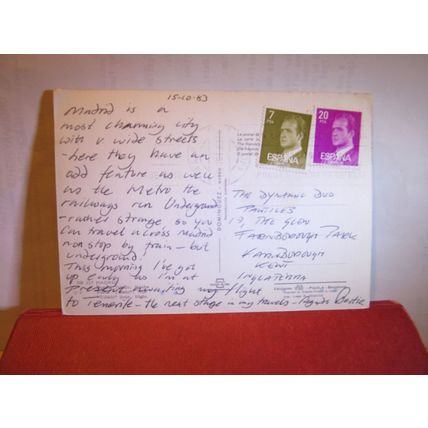 15-10-83
Madrid is a
most charming city
with v. wide streets
- here they have an
odd feature as well
as the Metro the
railways run Underground
- rather strange so you
can travel across Madrid
non stop by train - but
underground!
This morning I've got
up early as I'm at
present awaiting my flight
to Tenerife - the next stage in my travels -
7
PTA
ESPAÑA
20
PTA
ESPAÑA
DOMINGUEZ
THE DYNAMIC DUO
PANTILES
17, THE GLEN
FARNBOROUGH PARK
FARNBOROUGH
KENT
INGLATERRA